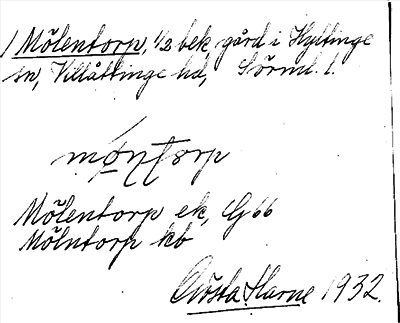 1 Mölentorp, 1/2 bek gård i Hyltinge
sn, Villåttinge hd, Sörml. l.
møntorp
Mölentorp ek, G 66
Mölntorp kb
Gösta Harne 1932.